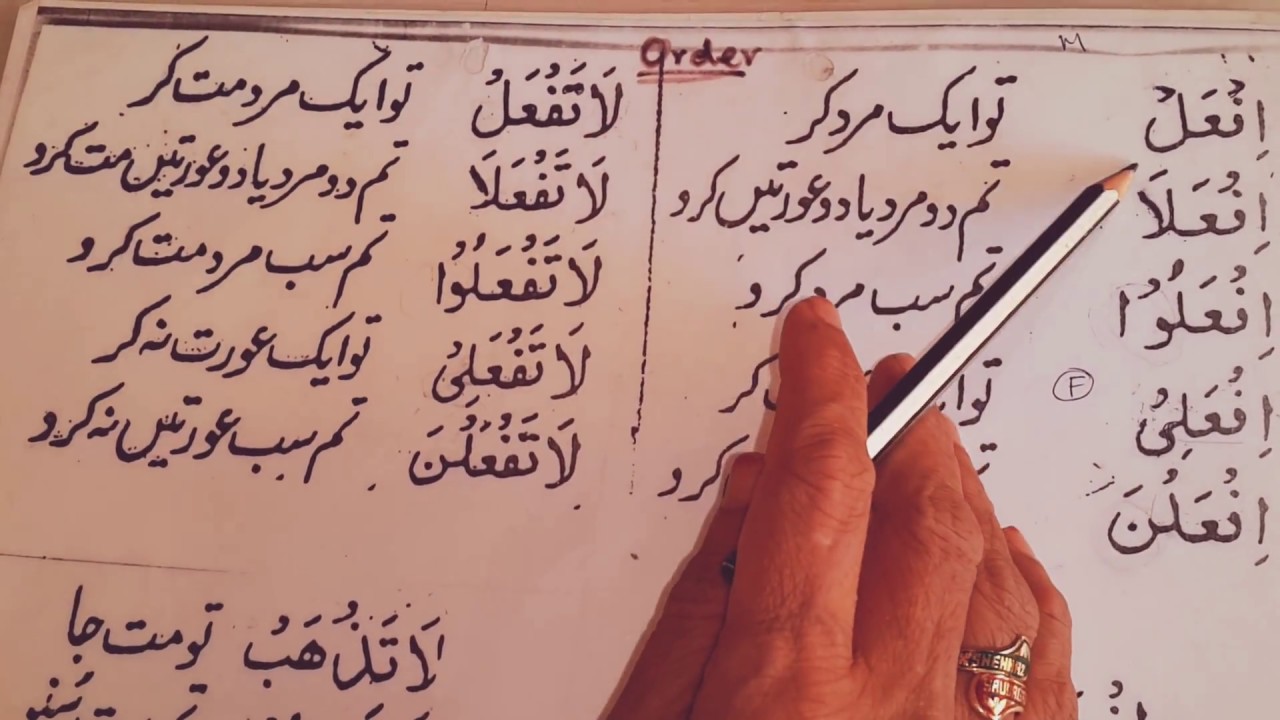 Order
M
اِفْعَلْ تو ایک مرد کر
اِفْعَلَا تم دو مرد یا دو عورتیں کرو
اِفْعَلُوْا تم سب مرد کرو
F
اِفْعَلِیْ تو ایک کر
اِفْعَلْنَ کرو
لَا تَفْعَلْ تو ایک مرد مت کر
لَا تَفْعَلَا تم دو مرد یا دو عورتیں مت کرو
لَا تَفْعَلُوْا تم سب مرد مت کرو
لَا تَفْعَلِیْ تو ایک عورت نہ کر
لَا تَفْعَلْنَ تم سب عورتیں نہ کرو
لَا تَذْهَبْ تو مت جا